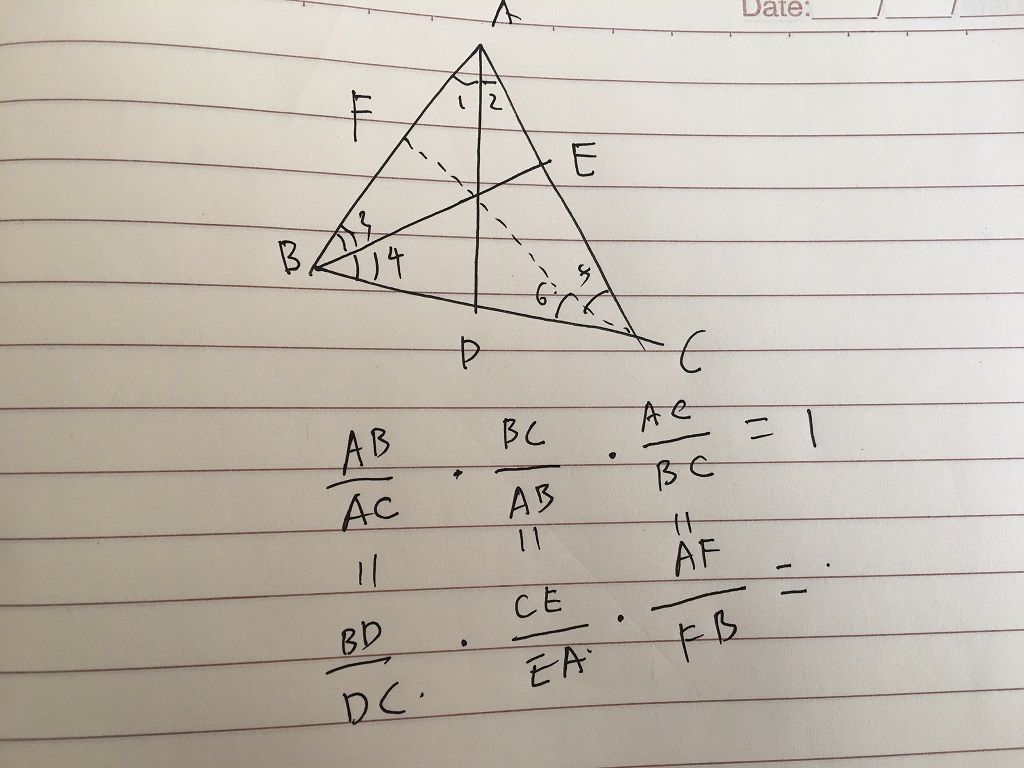 Date: / /
A
1 2
F
E
3
B 4
6 5
D C
AB/AC · BC/AB · AC/BC = 1
= = =
BD/DC · CE/EA · AF/FB =